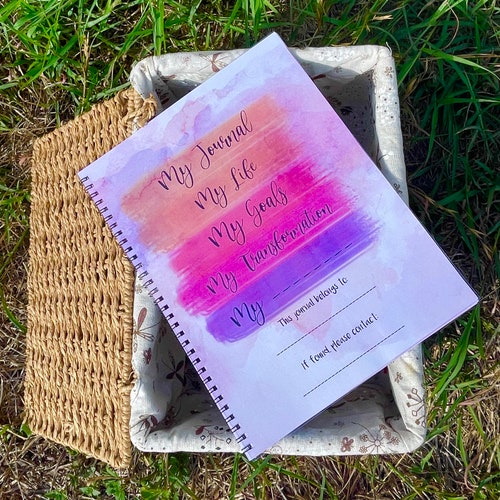 My Journal
My Life
My Goals
My Transformation
My _ _ _ _ _ _ _
This journal belongs to:
If found please contact: